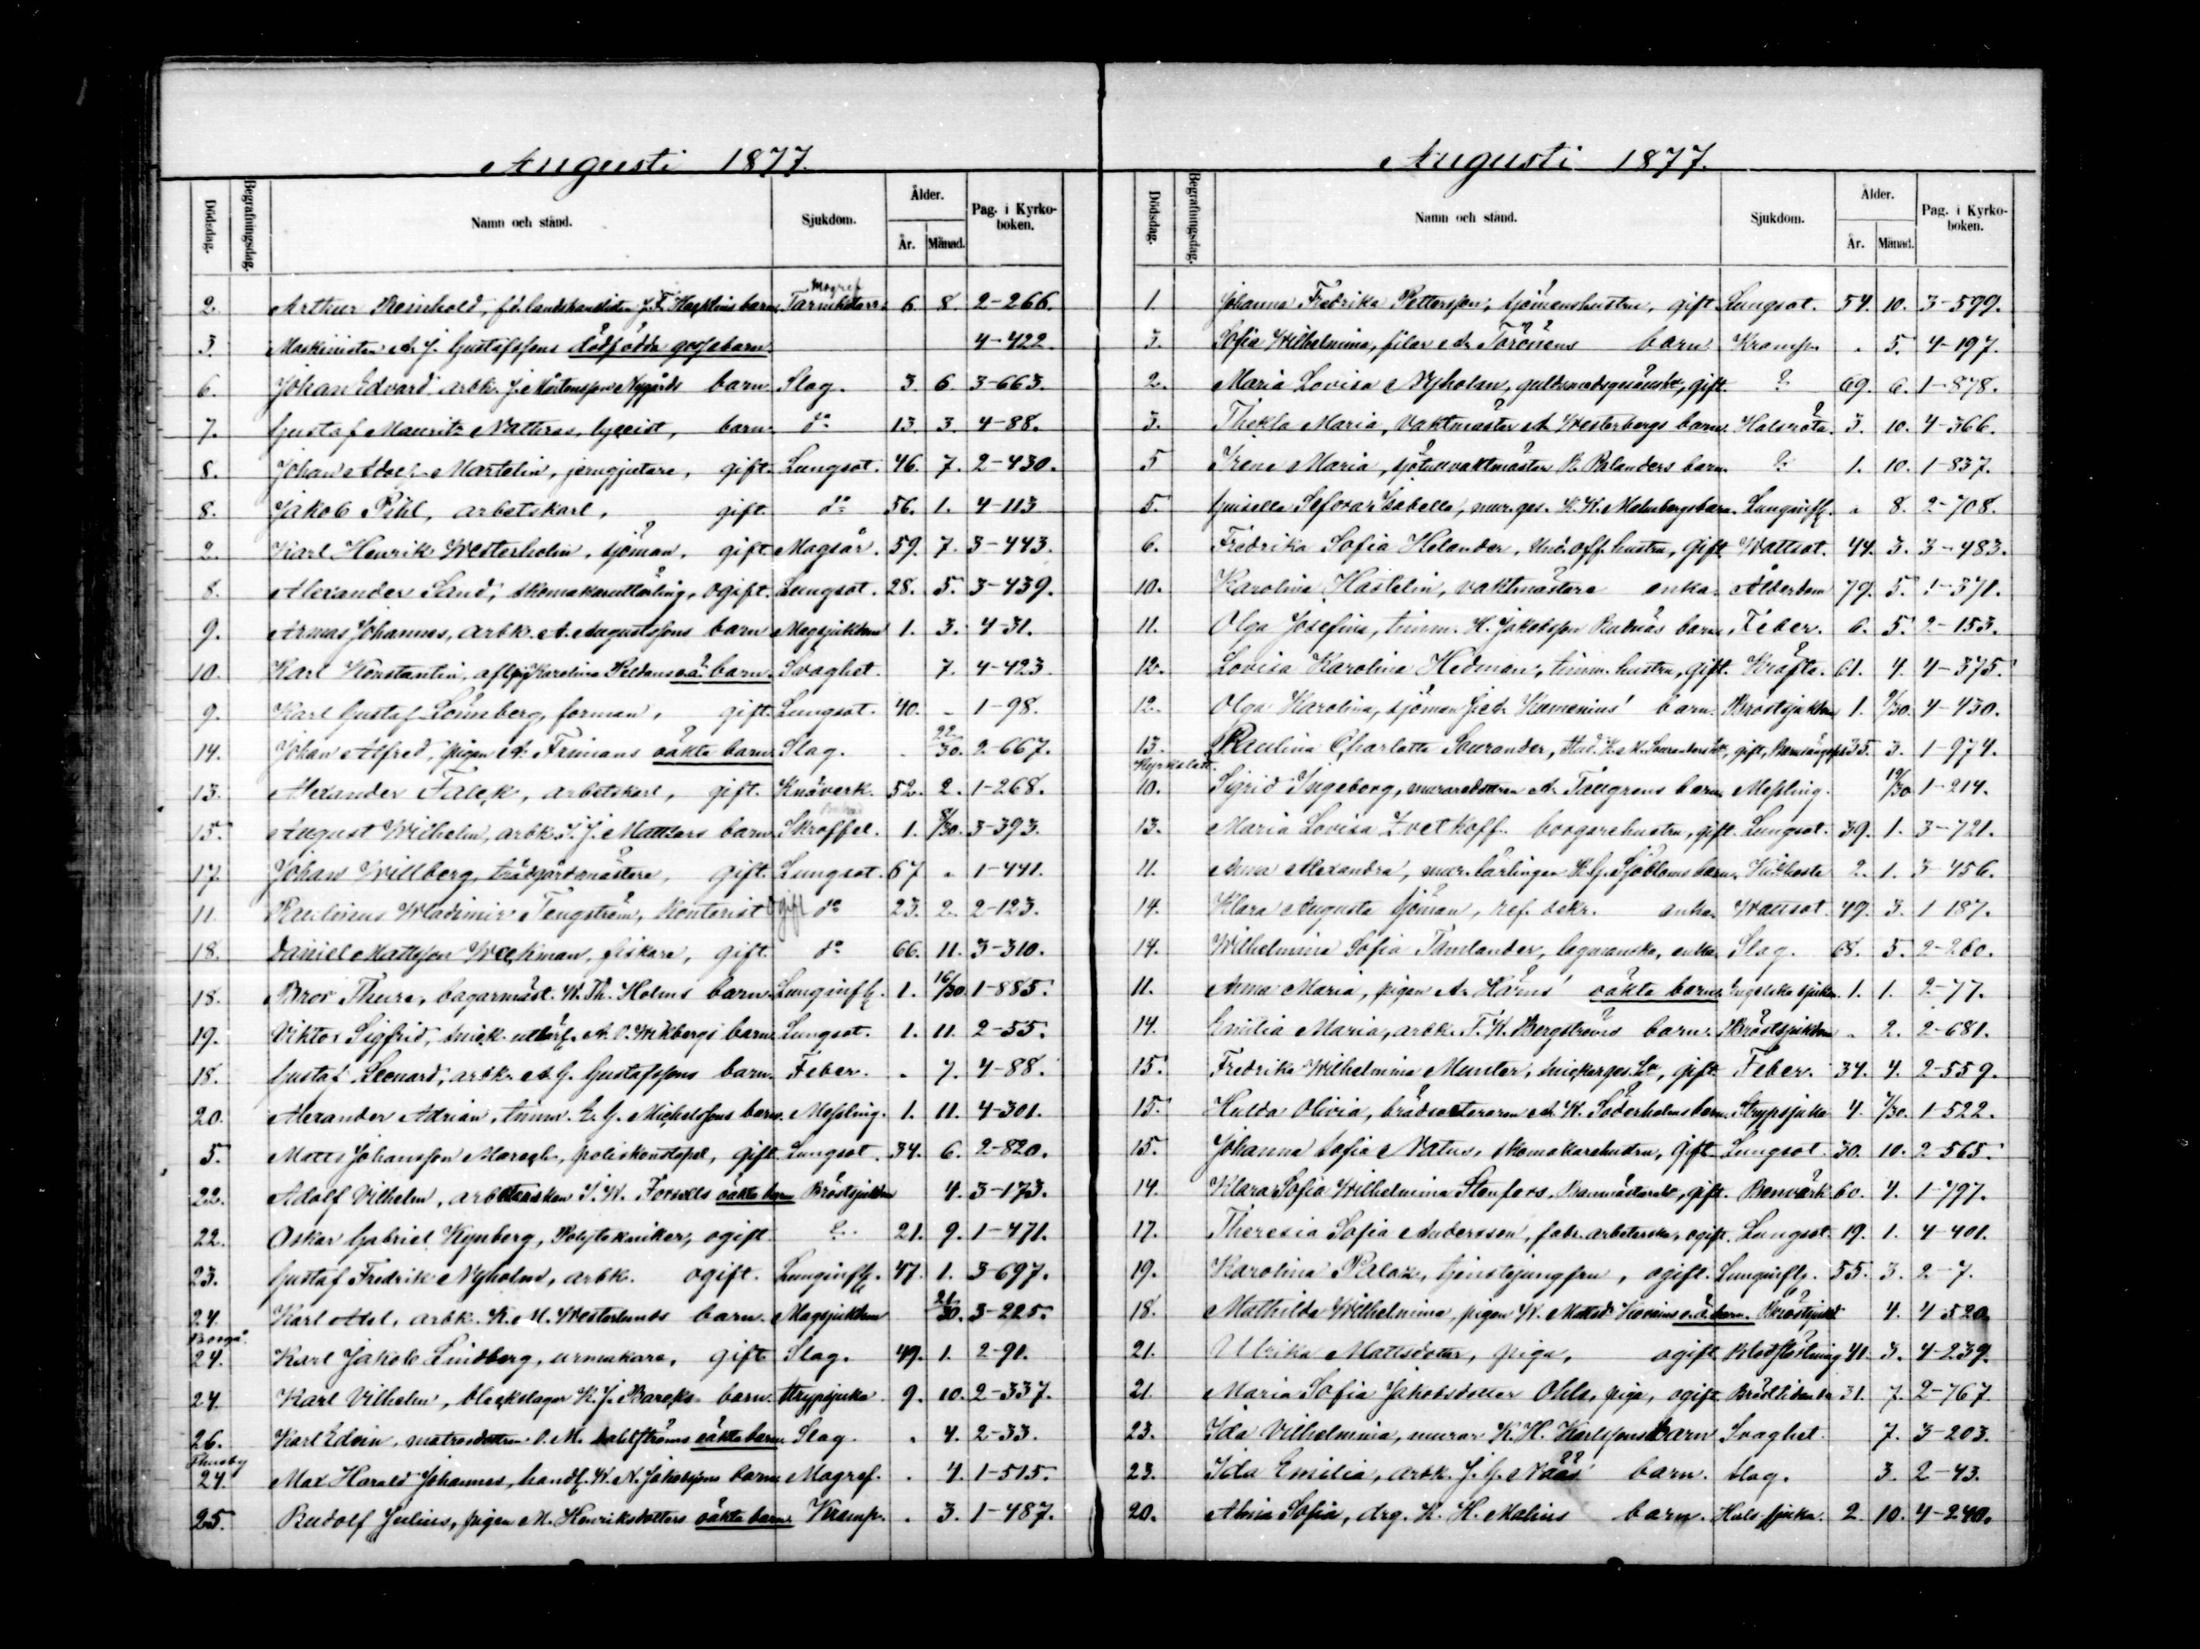 Augusti 1877.
Dödsdag. Begrafningsdag. Namn och stånd. Sjukdom. Ålder. År. Månad. Pag. i Kyrkoboken.
2. Arthur Reinhold, f.d. landskanslisten J. F. Hagelins barn. Magref Tarmkatarr. 6. 8. 2-266.
3. Maskinisten A. J. Gustafssons dödfödda gossebarn. 4-422
6. Johan Edvard arbk. J. Mårtensson Nygårds barn. Slag. 3. 6. 3-663.
7. Gustaf Mauritz Nathras, lyceist, barn. do 13. 3. 4-88.
8. Johan Adolf Martelin, jerngjutare, gift. Lungsot. 46. 7. 2-430.
8. Jakob Pihl, arbetskarl, gift. do 56. 1. 4-113
2. Karl Henrik Westerholm, sjöman, gift Magsår. 59. 7. 3-443.
8. Alexander Sand, skomakareutlärling, ogift. Lungsot. 28. 5. 3-439.
9. Armas Johannes, arbk. A. Augustssons barn Magsjukdom 1. 3. 4-31.
10. Karl Konstantin, afl. pig. Karolina Seldans o.ä. barn. Svaghet. 7. 4-423
9. Karl Gustaf Lönnberg, forman, gift. Lungsot. 40. - 1-98.
14. Johan Alfred, pigan A. Frimans oäkta barn. Slag. . 22/30. 2-667.
13. Alexander Falck, arbetskarl, gift. Knäverk. 52. 2. 1-268.
15. August Wilhelm, arbk. S. J. Mattsars barn. Skroffel. 1. 8/30. 3-393.
17. Johan Willberg, trädgårdsmästare, gift. Lungsot. 67 . 1-441.
11. Paulinus Wladimir Tengström, Kontorist Ogift do 23. 2. 2-123.
18. Daniel Mattsson Weckman, fiskare, gift. do 66. 11. 3-310.
18. Bror Thure, bagarmäst. W. Th. Holms barn. Lunginfl. 1. 16/30 1-885.
19. Viktor Sigfrid, snick. utlärl. A. O. Wikbergs barn. Lungsot. 1. 11. 2-55.
18. Gustaf Leonard, arbk. A. G. Gustafssons barn. Feber. . 7. 4-88.
20. Alexander Adrian, timm. E. G. Michelssons barn. Messling. 1. 11. 4-301.
5. Matts Johansson Maregh, poliskonstapel, gift. Lungsot. 34. 6. 2-820.
22. Adolf Vilhelm, arbeterskan S. W. Forsells oäkta barn Bröstsjukdom 4. 3-173.
22. Oskar Gabriel Kynberg, Polytekniker, ogift. ? 21. 9. 1-471.
23. Gustaf Fredrik Nyholm, arbk. ogift. Lunginfl. 47. 1. 3-697.
24. Karl Axel, arbk. K. M. Westerlunds barn. Magsjukdom 21/30. 3-225
Borgå 24. Karl Jakob Lindberg, urmakare, gift Slag. 49. 1. 2-91.
24. Karl Vilhelm, bleckslagar K. J. Barcks barn. Strypsjuka 9. 10. 2-337.
26. Karl Edvin, matrosdottren O. M. Dahlströms oäkta barn Slag. . 4. 2-33.
Thusby 24. Max Harald Johannes, handl. W. N. Jakobsons barn. Magref. . 4. 1-515.
25. Rudolf Julius, pigan M. Henriksdotters oäkta barn. Kramp. . 3. 1-487.
Augusti 1877.
Dödsdag. Begrafningsdag. Namn och stånd. Sjukdom. Ålder. År. Månad. Pag. i Kyrkoboken.
1. Johanna Fredrika Pettersson, sjömanshustru, gift Lungsot. 54. 10. 3-599.
3. Sofia Wilhelmina, filar A. Törönens barn. Kramp. . 5. 4-197.
2. Maria Lovisa Nyholm, guldsmedsgesällhu, gift. ? 69. 6. 1-878.
3. Thekla Maria, Vaktmästar A. Westerbergs barn. Halsröta. 3. 10. 4-366.
5 Irene Maria, sjötullvaktmästar R. Relanders barn. ? 1. 10. 1-837.
5. Gunilla Seforar Isabella, mur.ges. K. K. Malmbergs barn. Lunginfl. . 8. 2-708.
6. Fredrika Sofia Helander, Und. off. hustru, gift Wattsot. 44. 3. 3-483.
10. Karolina Hastelin, vaktmästare enka. Ålderdom 79. 5. 1-371.
11. Olga Josefina, timm. H. Jakobsson Rudnäs barn. Feber. 6. 5. 2-153.
12. Lovisa Karolina Hedman, timm. hustru, gift. Kräfta. 61. 4. 4-375.
12. Olga Karolina, sjöman J. A. Kumenius' barn. Bröstsjukdom 1. 9/30. 4-430.
13. Paulina Charlotta Saurander, gift, Barnsängsf. 35. 3. 1-974.
Kyrkslätt. 10. Sigrid Ingeborg, muraredottren A. Tallgrens barn Messling. 19/30 1-214.
13. Maria Lovisa Zvetkoff. borgarehustru, gift. Lungsot. 39. 1. 3-721.
11. Anna Alexandra, mur. lärlingen K. G. Sjöbloms barn. Kikhosta 2. 1. 3-456.
14. Klara Augusta Sjöman, ref. sekr. enka. Wattsot. 49. 3. 1-187.
14. Wilhelmina Sofia Tamlander, lagmanska, enka. Slag. 68. 5. 2-260.
11. Anna Maria, pigan A. Härms' oäkta barn. Engelska sjukan. 1. 1. 2-77.
14. Emilia Maria, arbk. F. W. Bergströms barn. Bröstsjukdom . 2. 2-681.
15. Fredrika Wilhelmina Munter, snickarges. hu, gift. Feber. 34. 4. 2-559.
15. Hulda Olivia, brädsorteraren A. W. Söderholms barn. Strypsjuka 4. 4/30. 1-522.
15. Johanna Sofia Natus, skomakarehustru, gift Lungsot 30. 10. 2-565.
14. Klara Sofia Wilhelmina Stenfors, Banmästarehu, gift. Benvärk 60. 4. 1-797.
17. Theresia Sofia Andersson, fabr. arbeterska, ogift. Lungsot. 19. 1. 4-401.
19. Karolina Palaz, tjenstejungfru, ogift. Lunginfl. 55. 3. 2-7.
18. Mathilda Wilhelmina, pigan W. o.ä. barn. Bröstsjukd. 4. 4-520.
21. Ulrika Mattsdotter, piga, ogift. Blodflödning 41. 3. 4-239.
21. Maria Sofia Jakobsdotter Ohls, piga, ogift. Bröstlidande 31. 7. 2-767
23. Ida Vilhelmina, murar K. H. Karlssons barn Svaghet. 7. 3-203.
23. Ida Emilia, arbk. J. G. Nääs' barn. Slag. 3. 2-43.
20. Alma Sofia, drg. K. H. Malins barn. Hals-sjuka. 2. 10. 4-240.